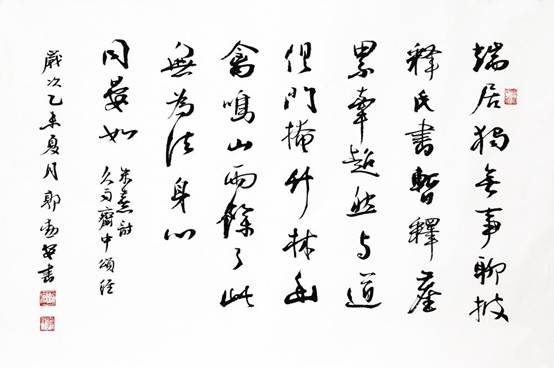 端居独无事聊披
釋氏書暫釋塵
累牽超然与道
俱門掩竹林幽
禽鳴山雨餘了此
無為法身心
同晏如
朱熹詩
久雨齋中頌經
歲次乙未夏月郭書